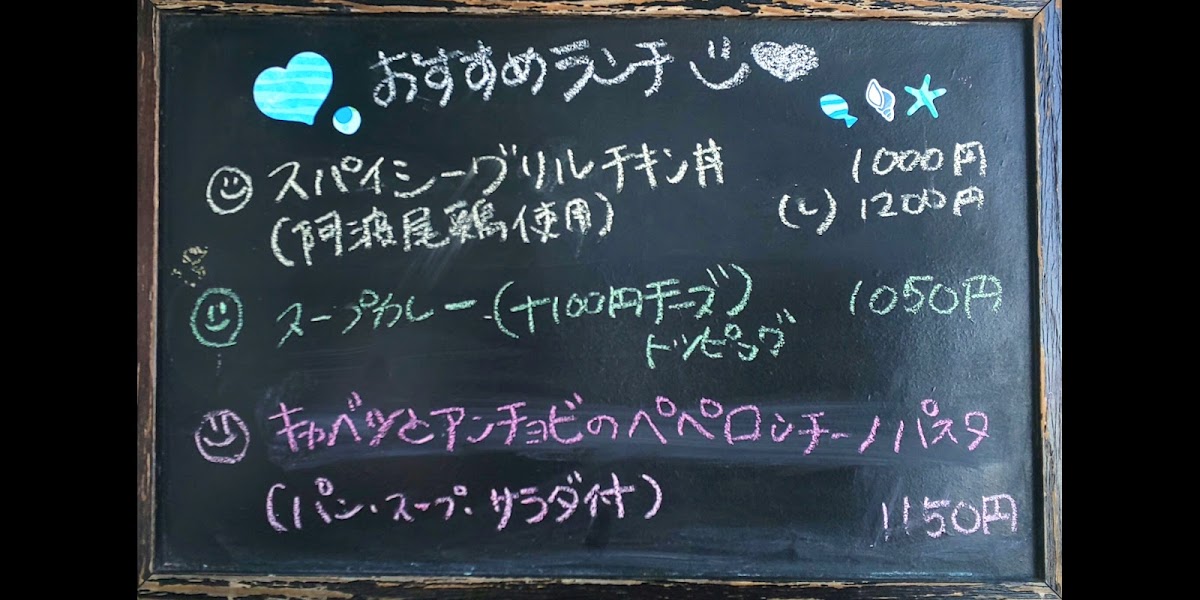 おすすめランチ
スパイシーグリルチキン丼 1000円
(阿波尾鶏使用) (L) 1200円
スープカレー (+100円チーズ) 1050円
トッピング
キャベツとアンチョビのペペロンチーノパスタ
(パン・スープ・サラダ付) 1150円